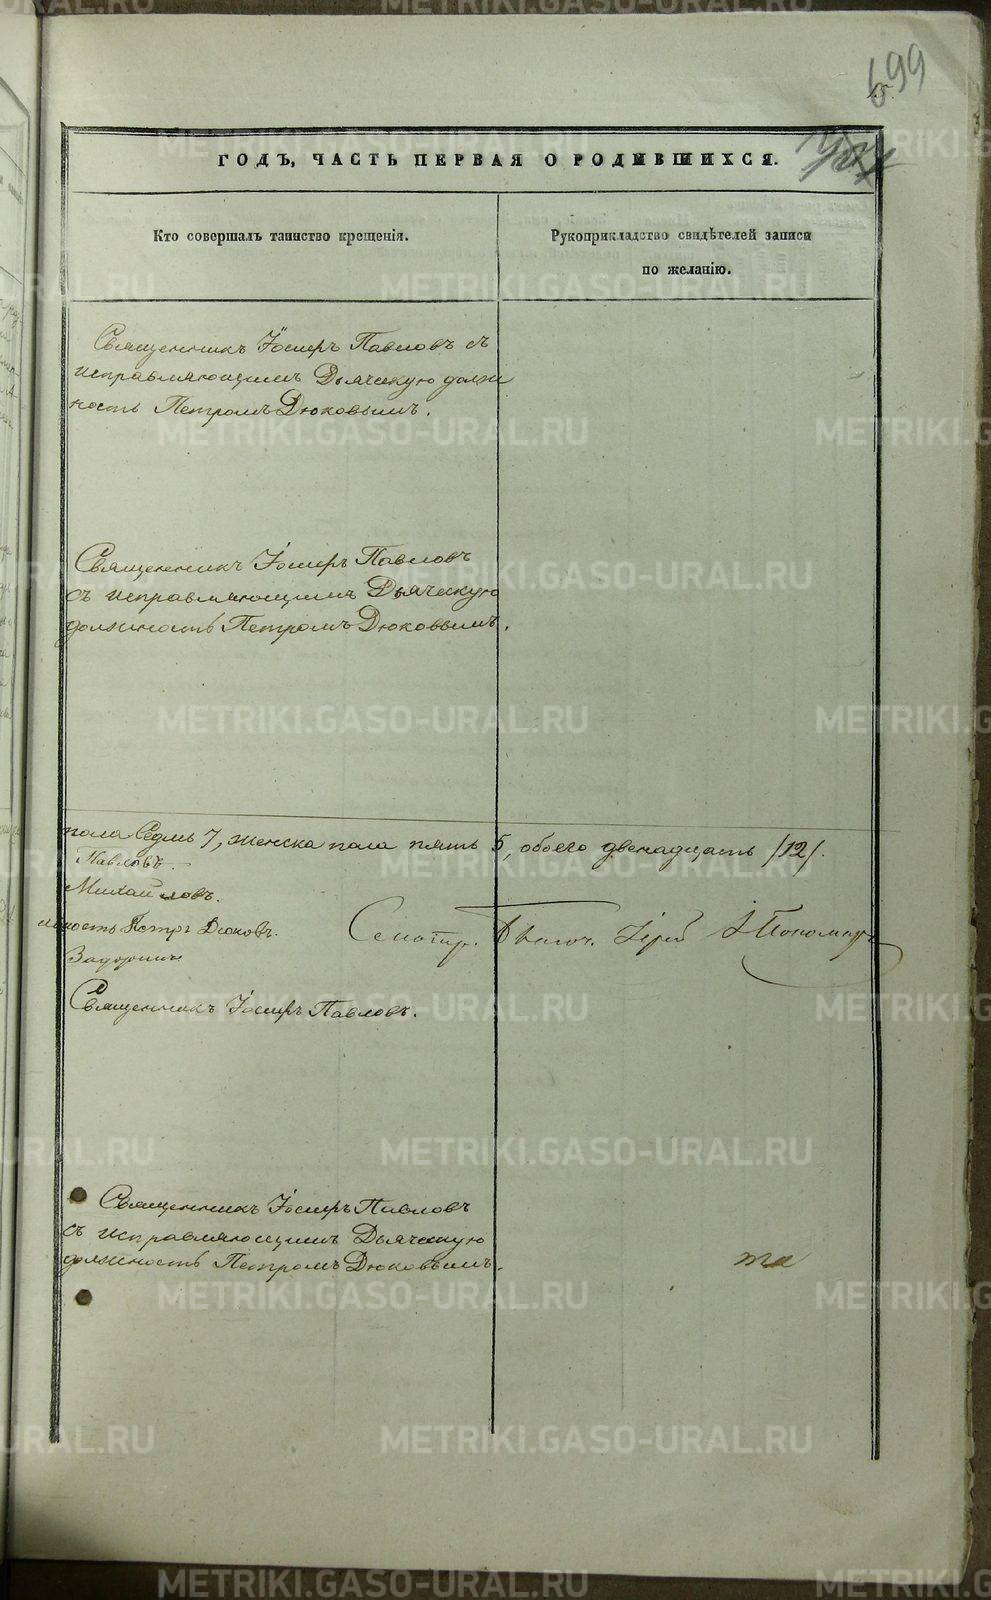 699
ГОДЪ, ЧАСТЬ ПЕРВАЯ О РОДИВШИХСЯ.
Кто совершалъ таинство крещенія.
Рукоприкладство свидѣтелей записи
по желанію.
Священникъ Іосифъ Павловъ съ
исправляющимъ Дьяческую долж
ность Петромъ Дюковымъ.
Священникъ Іосифъ Павловъ
съ исправляющимъ Дьяческую
должность Петромъ Дюковымъ.
пола Седмь 7, женска пола пять 5, обоего двенадцать /12/.
Павловъ.
Михайловъ.
ность Петръ Дюковъ.
Задоринъ
Благоч. Іерей І Пономарев
Священникъ Іосифъ Павловъ.
Священникъ Іосифъ Павловъ
съ исправляющимъ Дьяческую
должность Петромъ Дюковымъ.
та
METRIKI.GASO-URAL.RU